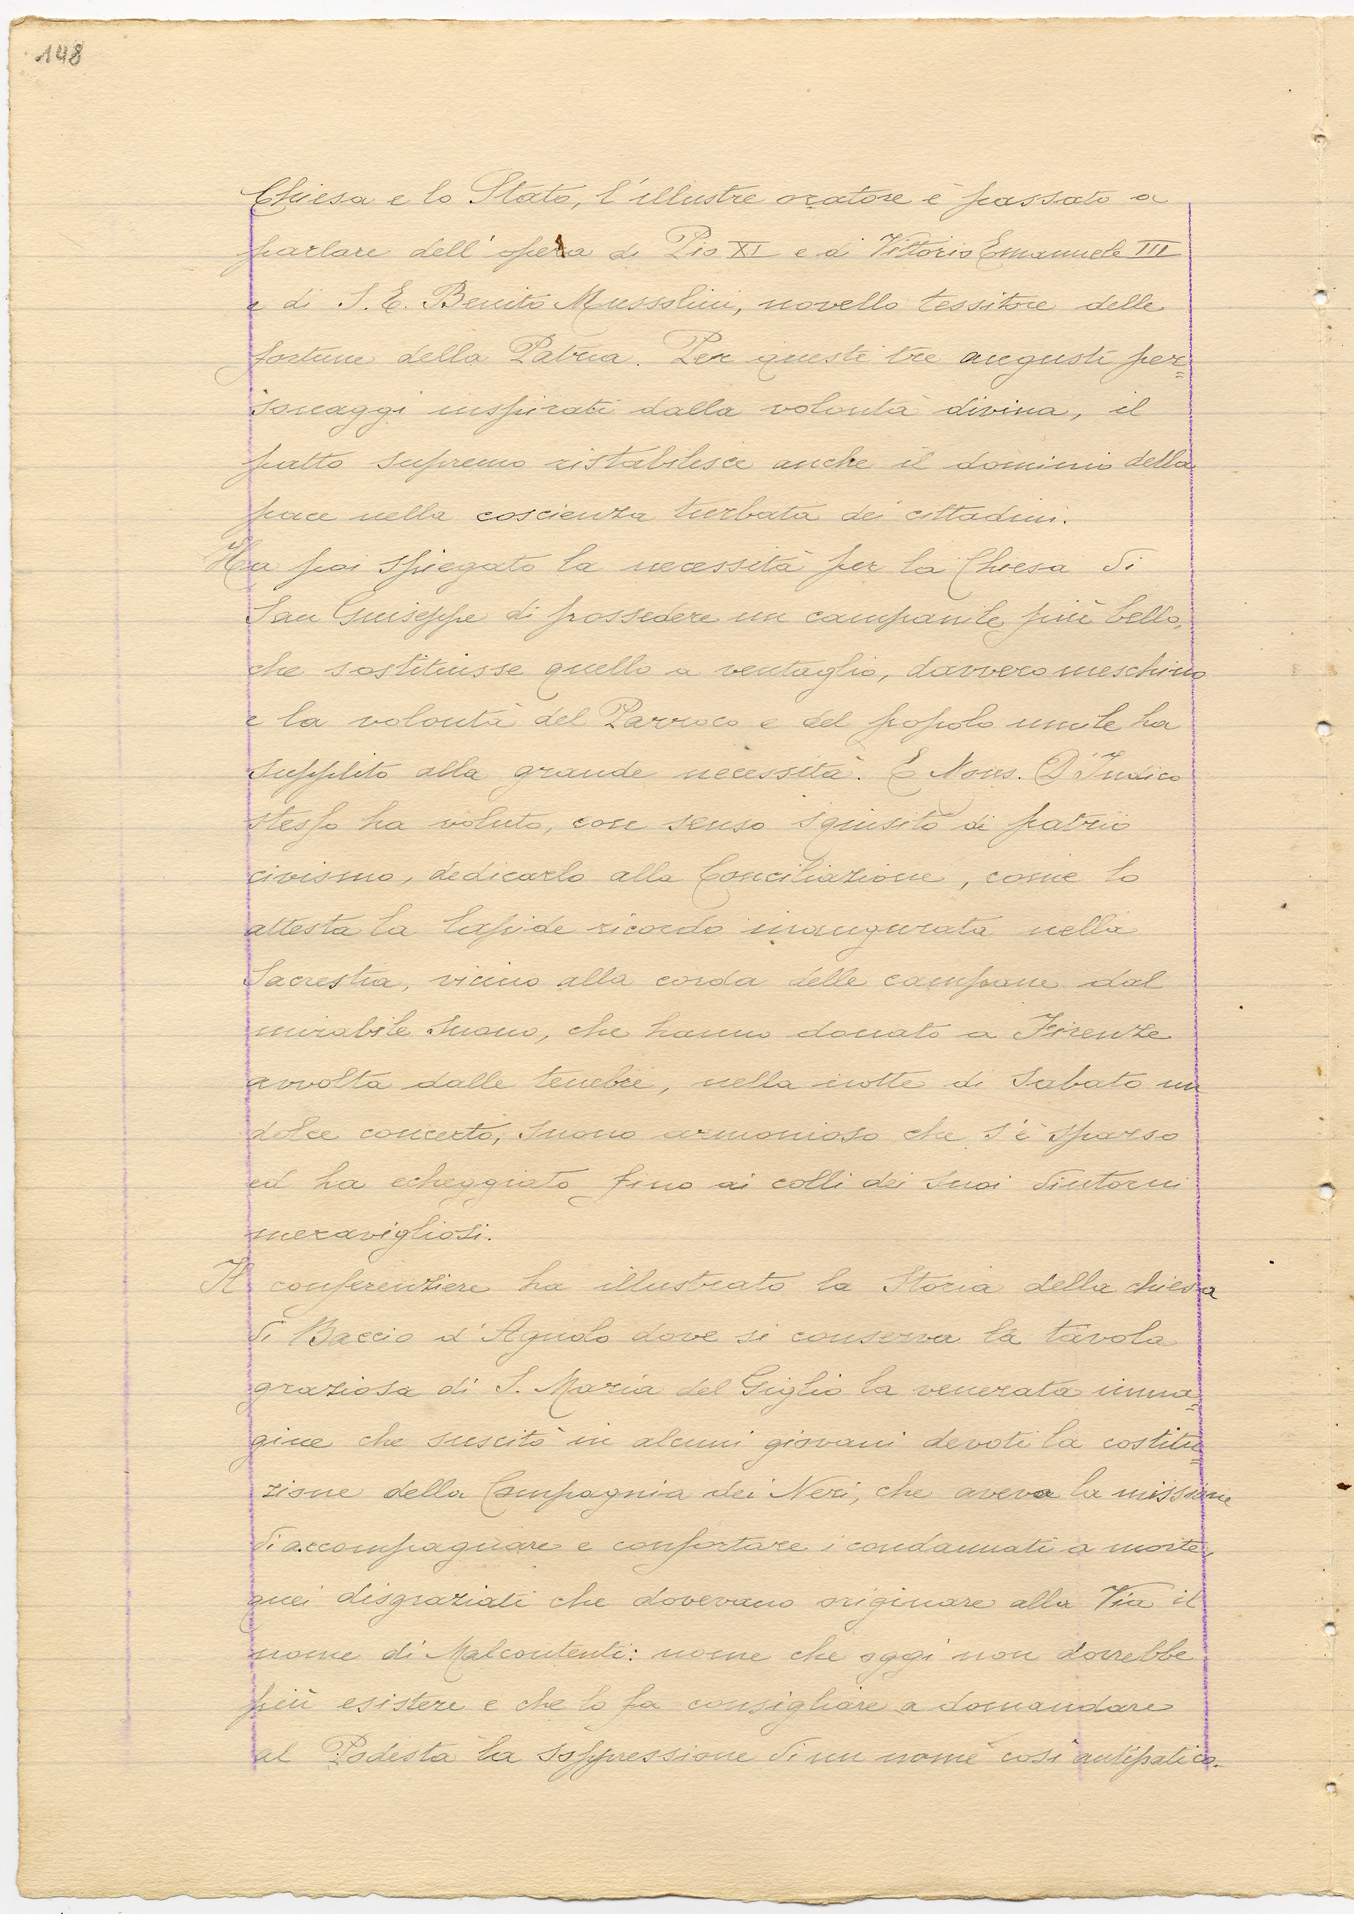 148
Chiesa e lo Stato, l'illustre oratore è passato a
parlare dell'opera di Pio XI e di Vittorio Emanuele III
e di S. E. Benito Mussolini, novello tessitore delle
fortune della Patria. Per questi tre augusti per=
sonaggi inspirati dalla volontà divina, il
patto supremo ristabilisce anche il dominio della
pace nella coscienza turbata dei cittadini.
Ha poi spiegato la necessità per la Chiesa di
San Giuseppe di possedere un campanile più bello,
che sostituisse quello a ventaglio, davvero meschino
e la volontà del Parroco e del popolo umile ha
supplito alla grande necessità. E Mons. D'Indico
stesso ha voluto, con senso squisito di patrio
civismo, dedicarlo alla Conciliazione, come lo
attesta la lapide ricordo inaugurata nella
Sacrestia, vicino alla corda delle campane dal
mirabile suono, che hanno donato a Firenze
avvolta dalle tenebre, nella notte di Sabato un
dolce concerto, suono armonioso che s'è sparso
ed ha echeggiato fino ai colli dei suoi dintorni
meravigliosi.
Il conferenziere ha illustrato la Storia della chiesa
di Baccio d'Agnolo dove si conserva la tavola
graziosa di S. Maria del Giglio la venerata imma=
gine che suscitò in alcuni giovani devoti la costitu=
zione della Compagnia dei Neri, che aveva la missione
di accompagnare e confortare i condannati a morte,
quei disgraziati che dovevano originare alla Via il
nome di Malcontenti: nome che oggi non dovrebbe
più esistere e che lo fa consigliare a domandare
al Podestà la soppressione di un nome così antipatico.